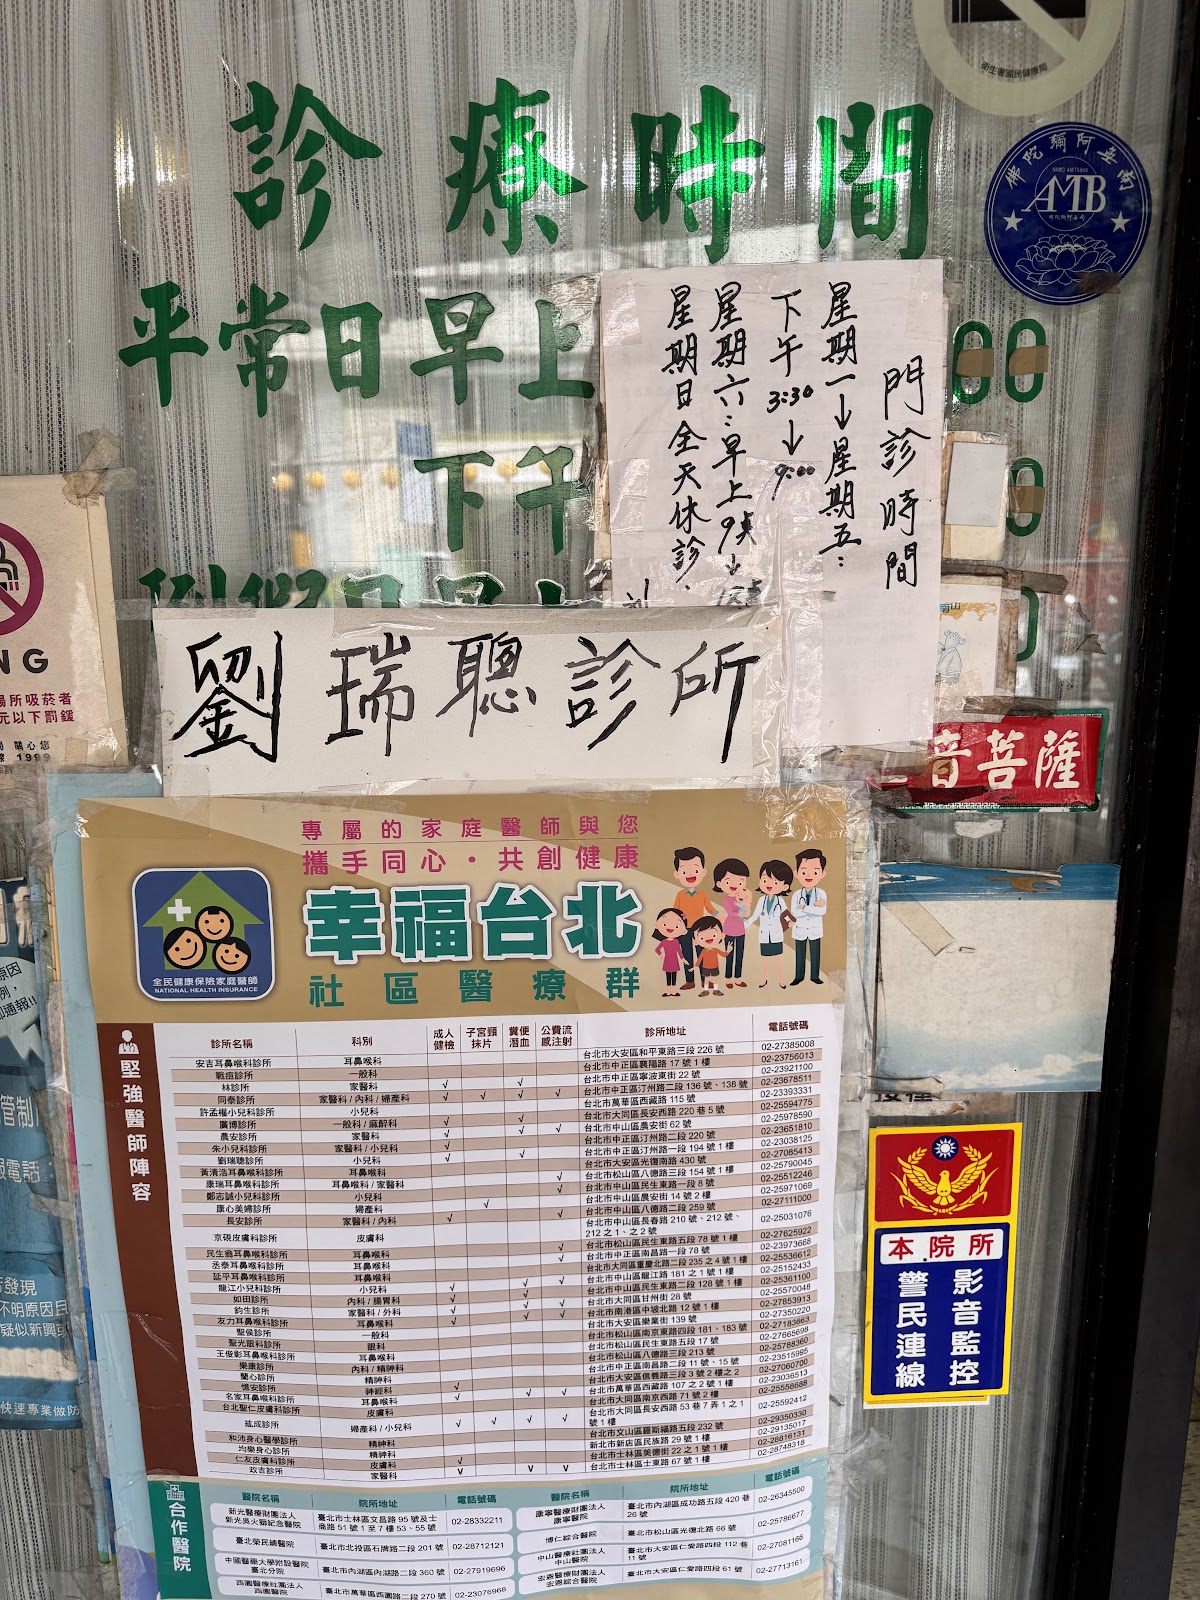 衛生署國民健康局
診療時間
南無阿彌陀佛
NAMO AMITABHA
AMB
平常日早上
00
下午
門診時間
星期一↓星期五：
下午3:30↓9:00
星期六：早上9點↓
星期日全天休診、
劉瑞聰診所
南山
音菩薩
NG
場所吸菸者
元以下罰鍰
關心您
1999
專屬的家庭醫師與您
攜手同心・共創健康
幸福台北
社區醫療群
全民健康保險家庭醫師
NATIONAL HEALTH INSURANCE
堅強醫師陣容
診所名稱 科別 成人健檢 子宮頸抹片 糞便潛血 公費流感注射 診所地址 電話號碼
安吉耳鼻喉科診所 耳鼻喉科 台北市大安區和平東路三段226號 02-27385008
戰痘診所 一般科 台北市中正區襄陽路17號1樓 02-23756013
林診所 家醫科 √ √ 台北市中正區寧波東街22號 02-23921100
同泰診所 家醫科/內科/婦產科 √ √ √ √ 台北市中正區汀州路二段136號、138號 02-23678511
許孟權小兒科診所 小兒科 台北市萬華區西藏路115號 02-23393331
廣博診所 一般科/麻醉科 √ √ 台北市大同區長安西路220巷5號 02-25594775
農安診所 家醫科 √ √ √ 台北市中山區農安街62號 02-25978590
朱小兒科診所 家醫科/小兒科 √ 台北市中正區汀州路二段220號 02-23651810
劉瑞聰診所 小兒科 √ √ 台北市中正區汀州路一段194號1樓 02-23038125
黃清浩耳鼻喉科診所 耳鼻喉科 台北市大安區光復南路430號 02-27085413
康瑞耳鼻喉科診所 耳鼻喉科/家醫科 √ 台北市松山區八德路三段154號1樓 02-25790045
鄭志誠小兒科診所 小兒科 √ 台北市中山區民生東路一段8號 02-25512246
康心美婦診所 婦產科 √ 台北市中山區農安街14號2樓 02-25971069
長安診所 家醫科/內科 √ √ 台北市中山區八德路二段259號 02-27111000
京硯皮膚科診所 皮膚科 台北市中山區長春路210號、212號、212之1、之2號 02-25031076
民生翁耳鼻喉科診所 耳鼻喉科 √ 台北市松山區民生東路五段78號1樓 02-27625922
丞泰耳鼻喉科診所 耳鼻喉科 √ 台北市中正區南昌路一段78號 02-23973668
延平耳鼻喉科診所 耳鼻喉科 √ √ 台北市大同區重慶北路二段235之4號1樓 02-25536612
龍江小兒科診所 小兒科 √ √ 台北市中山區龍江路181之1號1樓 02-25152433
如田診所 內科/腸胃科 √ √ 台北市中山區民生東路二段128號1樓 02-25361100
鈞生診所 家醫科/外科 √ √ √ 台北市大同區甘州街28號 02-25570048
友力耳鼻喉科診所 耳鼻喉科 √ √ √ 台北市南港區中坡北路12號1樓 02-27853913
聖侯診所 一般科 台北市大安區樂業街139號 02-27350220
聖光眼科診所 眼科 台北市松山區南京東路四段181、183號 02-27183663
王俊彰耳鼻喉科診所 耳鼻喉科 台北市松山區民生東路五段17號 02-27665698
樂康診所 內科/精神科 台北市松山區八德路三段213號 02-25788360
蘭心診所 精神科 台北市中正區南昌路二段11號、15號 02-23515995
憶安診所 神經科 √ 台北市大安區信義路三段3號2樓之2 02-27060700
名家耳鼻喉科診所 耳鼻喉科 √ √ √ 台北市萬華區西藏路107之2號1樓 02-23036513
台北聖仁皮膚科診所 皮膚科 台北市大同區南京西路71號2樓 02-25558688
紘成診所 婦產科/小兒科 √ √ √ √ 台北市大同區長安西路53巷7弄1之1號1樓 02-25592412
和沛身心醫學診所 精神科 台北市文山區羅斯福路五段232號 02-29350330
均樂身心診所 精神科 新北市新店區民族路29號1樓 02-29135017
仁友皮膚科診所 皮膚科 √ 台北市士林區美德街22之1號1樓 02-28816131
政吉診所 家醫科 √ √ √ 台北市士林區士東路67號1樓 02-28748318
合作醫院
醫院名稱 院所地址 電話號碼 醫院名稱 院所地址 電話號碼
新光醫療財團法人新光吳火獅紀念醫院 臺北市士林區文昌路95號及士商路51號1至7樓53、55號 02-28332211
康寧醫療財團法人康寧醫院 臺北市內湖區成功路五段420巷26號 02-26345500
臺北榮民總醫院 臺北市北投區石牌路二段201號 02-28712121
博仁綜合醫院 臺北市松山區光復北路66號 02-25786677
中國醫藥大學附設醫院臺北分院 臺北市內湖區內湖路二段360號 02-27919696
中山醫療社團法人中山醫院 臺北市大安區仁愛路四段112巷11號 02-27081166
西園醫療社團法人西園醫院 臺北市萬華區西園路二段270號 02-23076968
宏恩醫療財團法人宏恩綜合醫院 臺北市大安區仁愛路四段61號 02-27713161
本院所
警民連線
影音監控
原因
通報!!
管制
電話
發現
不明原因
疑似新興
快速專業做防